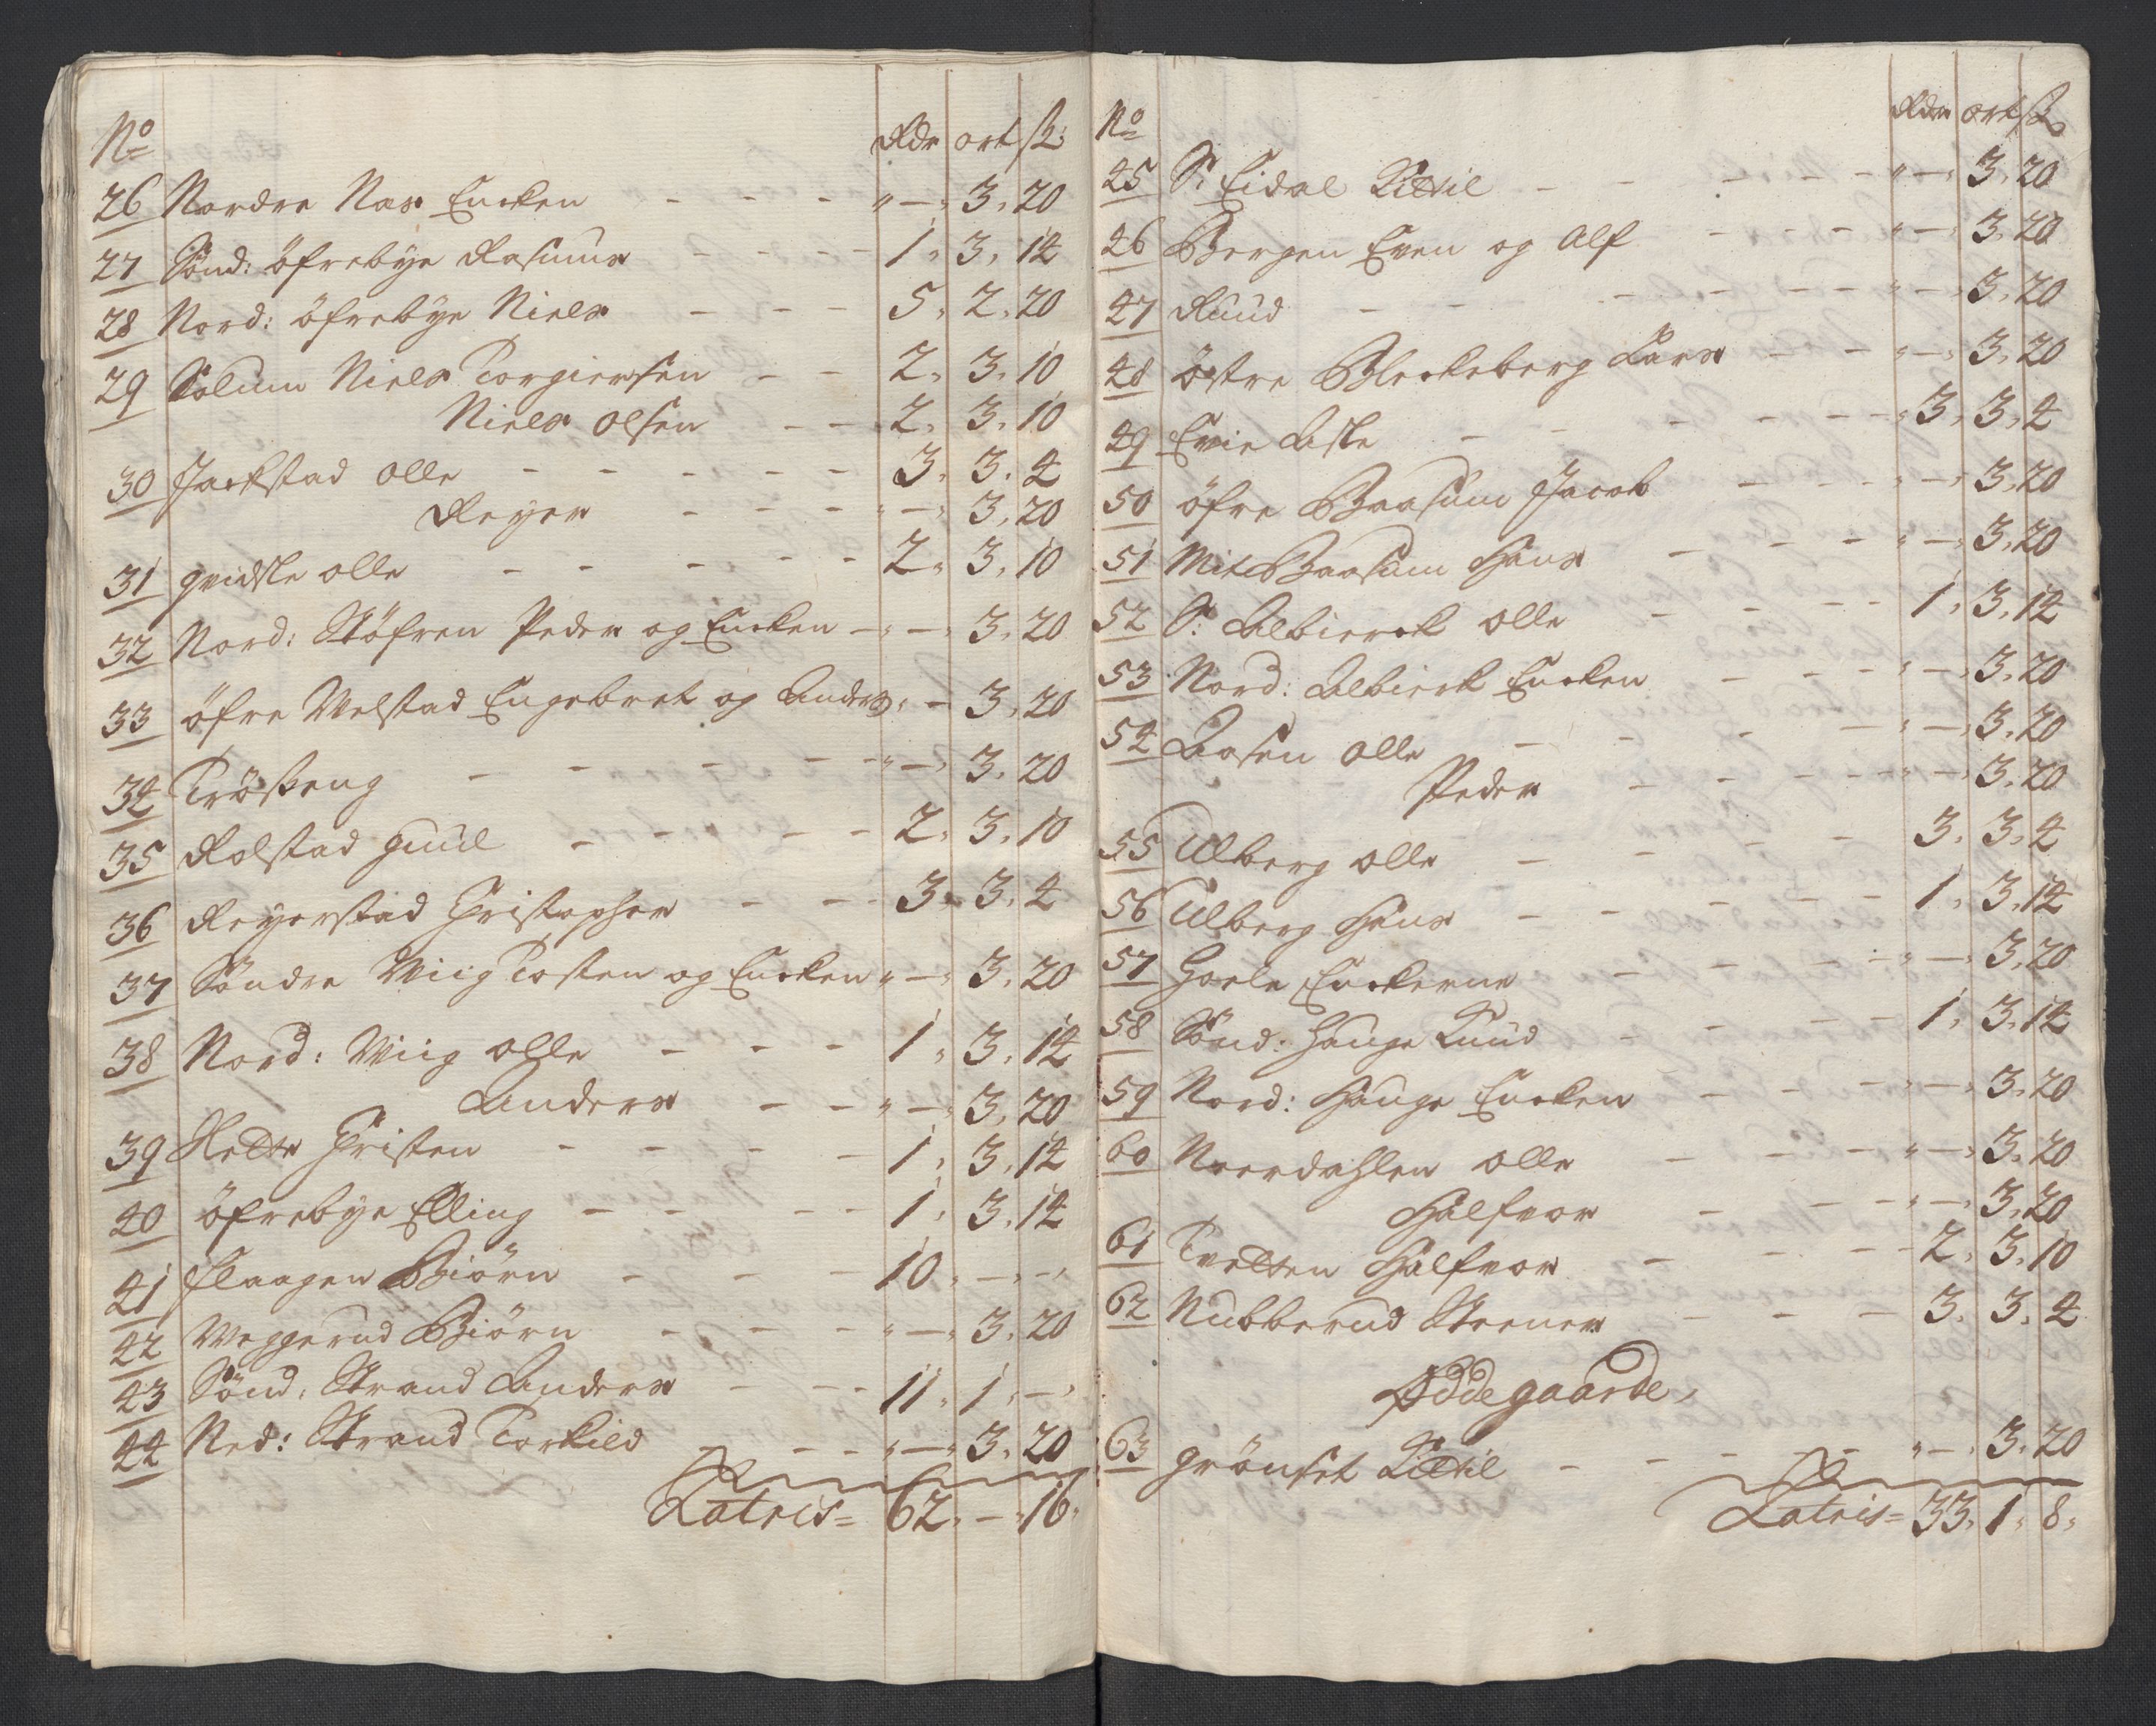 No Rdr ort ß
26 Nordre Næs Encken - - - " - 3. 20
27 Sønd: öfrebye Rasmus - - - 1. 3. 14
28 Nord: öfrebye Niels - - - 5. 2. 20
29 Solum Niels Torgiersen - - 2. 3. 10
Niels Olsen - - 2. 3. 10
30 Jackstad Olle - - - - - 3. 3. 4
Reyer - - - " - 3. 20
31 gvidste olle - - - - - 2. 3. 10
32 Nord: Støfren Peder og Encken - " - 3. 20
33 öfre Velstad Engebret og Anders " - 3. 20
34 Trößeng - - - - - " - 3. 20
35 Rolstad Guul - - - - - 2. 3. 10
36 Reyerstad Christopher - - - 3. 3. 4
37 Söndre Wiig Tosten og Encken " - 3. 20
38 Nord: Wiig olle - - - 1. 3. 14
Anders - - " - 3. 20
39 Slette Christen - - - - - 1. 3. 14
40 öfrebye Elling - - - - 1. 3. 14
41 Flaagen Biörn - - - 10. - -
42 Weggerud Biörn - - - " - 3. 20
43 Sönd: Strand Anders - - - 11. 1. -
44 Ned: Strand Torkild - - - " - 3. 20
Latris = 62. - 16.
No Rdr ort ß
45 S: Eidal Kittil - - - - - " - 3. 20
46 Bergen Even og Alf - - - - " - 3. 20
47 Ruud - - - - - - " - 3. 20
48 östre Bleckeberg Lars - - " - 3. 20
49 Evie Aste - - - - - 3. 3. 4
50 öfre Braasum Jacob - - - " - 3. 20
51 Mit Braasum Hans - - - " - 3. 20
52 S: Albierck olle - - - - 1. 3. 14
53 Nord: Albierck Encken - - - " - 3. 20
54 Aasen olle - - - - " - 3. 20
Peder - - - - - " - 3. 20
55 Ulberg olle - - - - 3. 3. 4
56 Ulberg Hans - - - - - 1. 3. 14
57 Goele Enckerne - - - " - 3. 20
58 Sönd: Hauge Knud - - - - 1. 3. 14
59 Nord: Hauge Encken - - - " - 3. 20
60 Noerdahlen olle - - - " - 3. 20
Halfvor - - - " - 3. 20
61 Tvetten Halfvor - - - - 2. 3. 10
62 Nubberud Steener - - - 3. 3. 4
Ødegaarde,
63 Grönset Kittil - - - - " - 3. 20
Latris = 33. 1. 8.